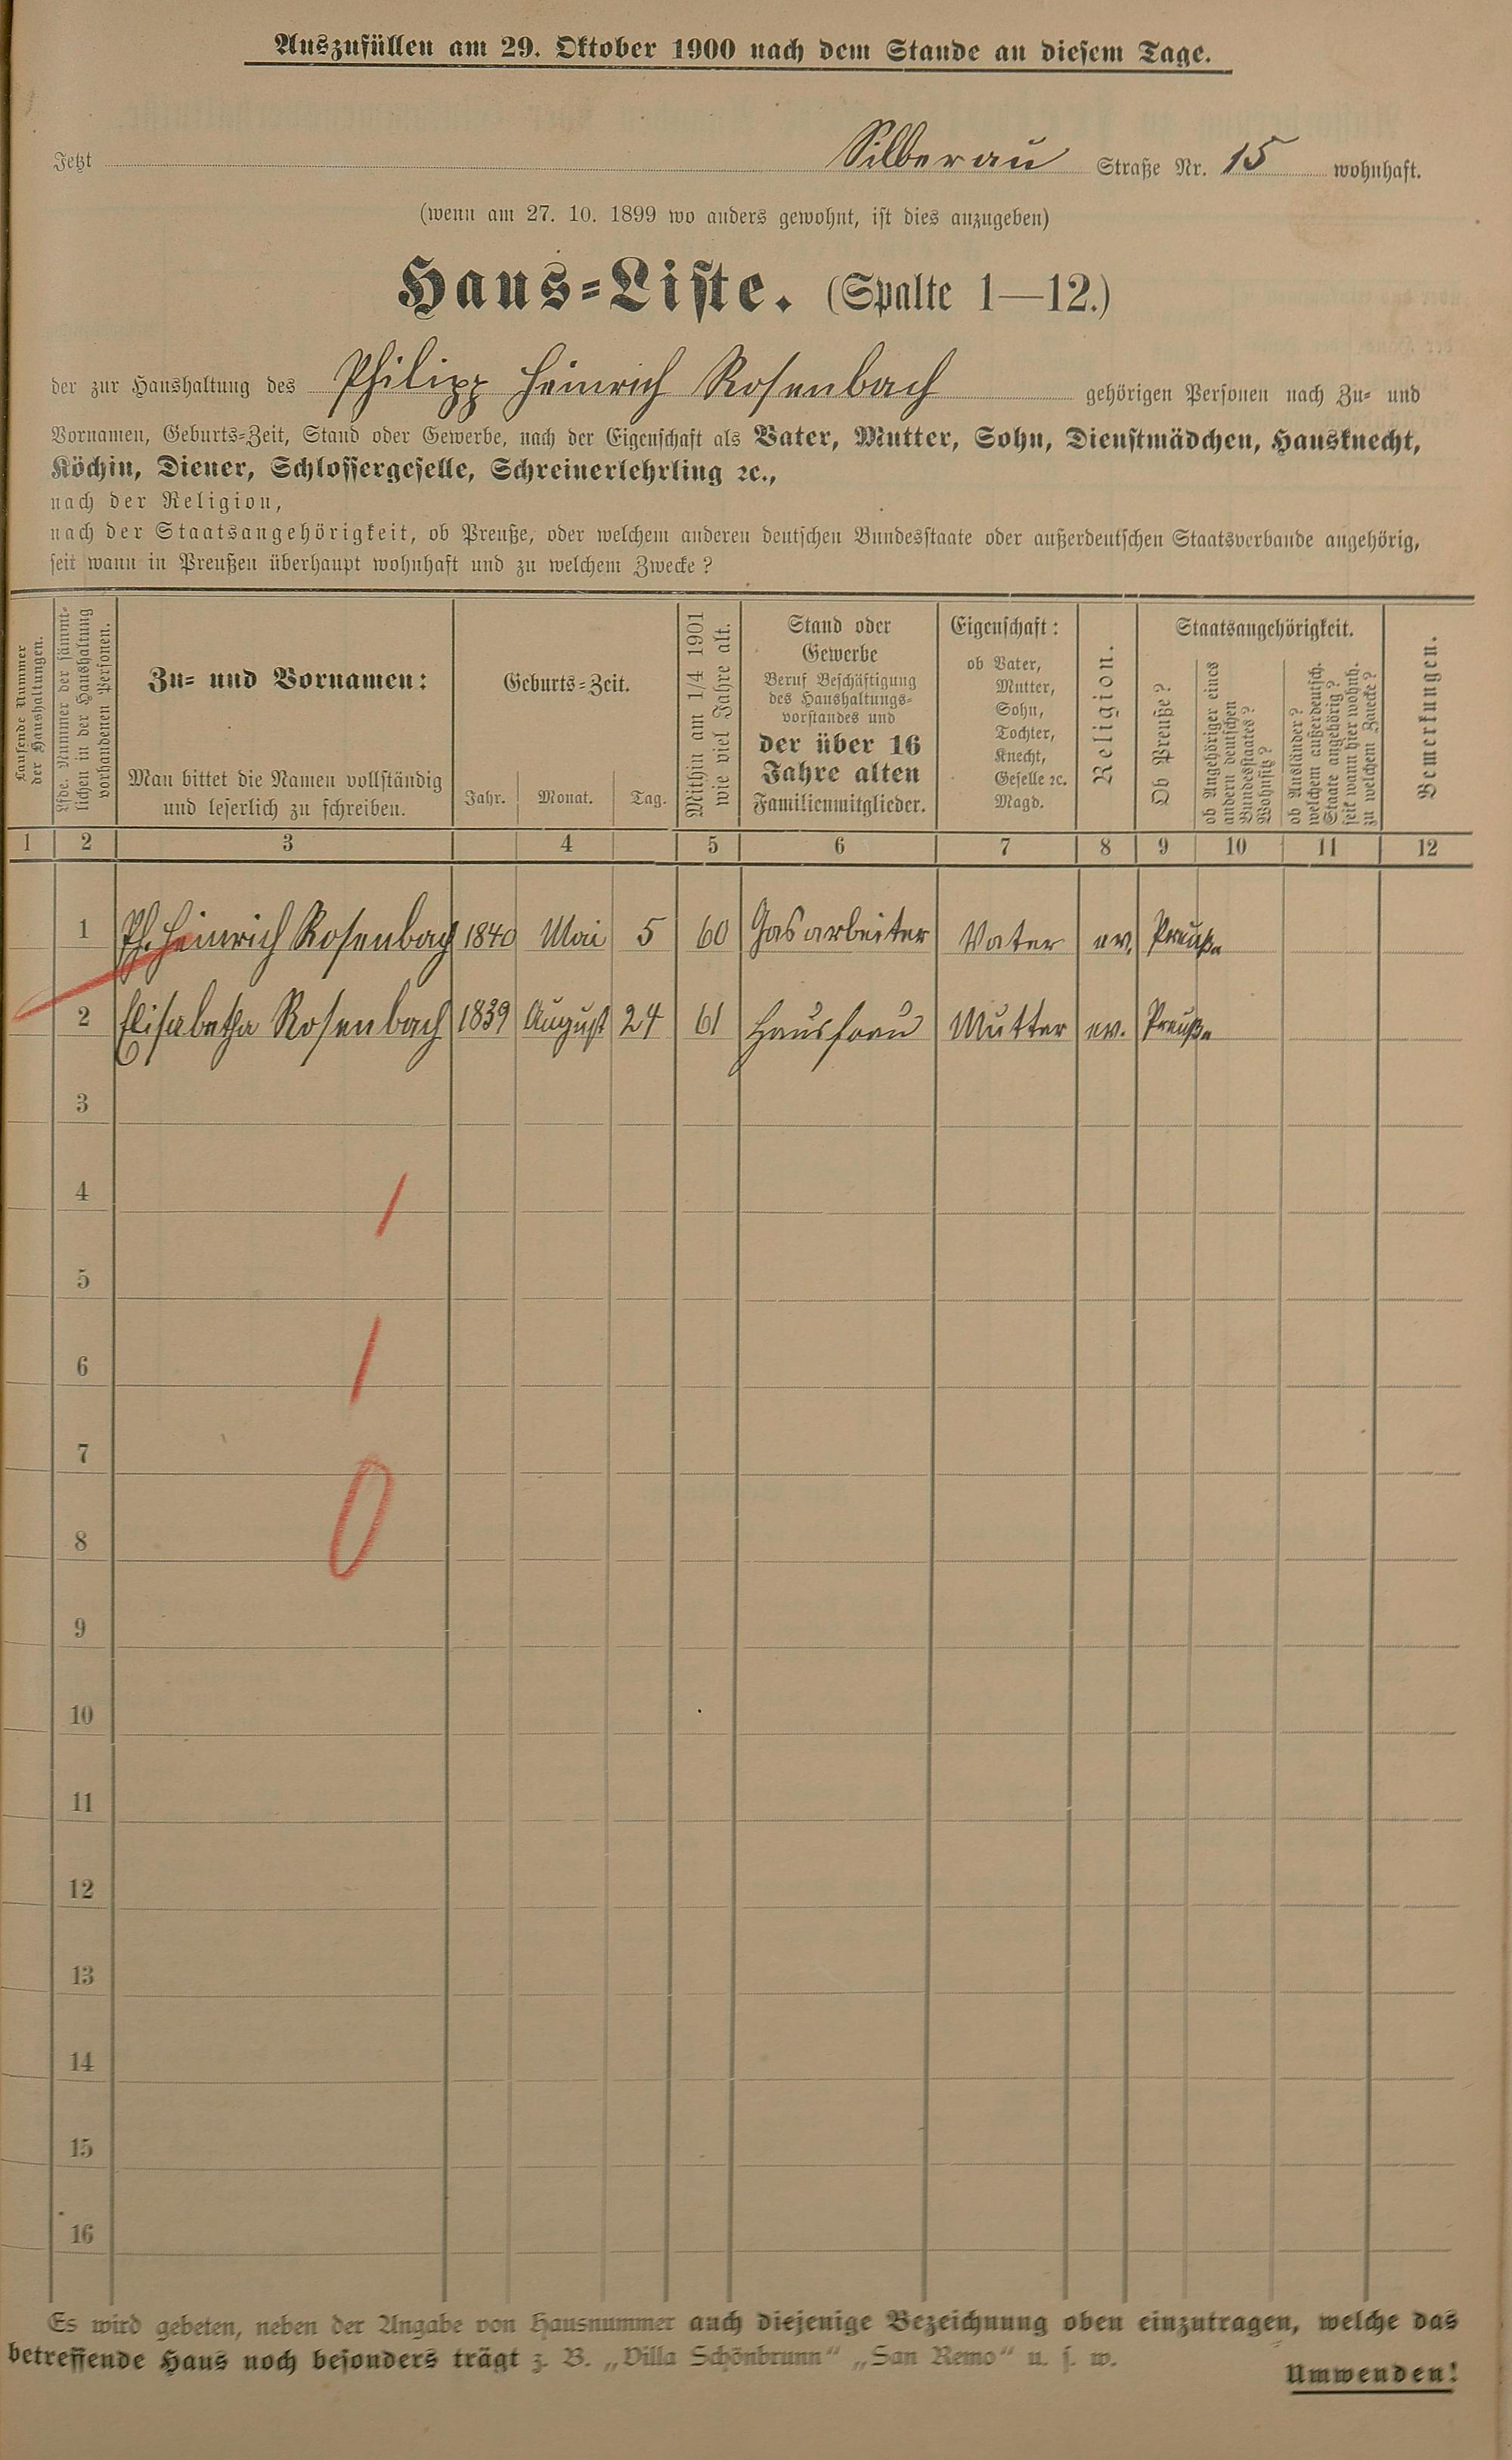 Auszufüllen am 29. Oktober 1900 nach dem Stande an diesem Tage.
Jetzt Silberau Straße Nr. 15 wohnhaft.
(wenn am 27. 10. 1899 wo anders gewohnt, ist dies anzugeben)
Haus-Liste. (Spalte 1—12.)
der zur Haushaltung des Philipp Heinrich Rosenbach gehörigen Personen nach Zu- und
Vornamen, Geburts-Zeit, Stand oder Gewerbe, nach der Eigenschaft als Vater, Mutter, Sohn, Dienstmädchen, Hausknecht,
Köchin, Diener, Schlossergeselle, Schreinerlehrling ꝛc.,
nach der Religion,
nach der Staatsangehörigkeit, ob Preuße, oder welchem anderen deutschen Bundesstaate oder außerdeutschen Staatsverbande angehörig,
seit wann in Preußen überhaupt wohnhaft und zu welchem Zwecke?
Laufende Nummer
der Haushaltungen.
Lfde. Nummer der sämmt-
lichen in der Haushaltung
vorhandenen Personen.
Zu- und Vornamen:
Man bittet die Namen vollständig
und leserlich zu schreiben.
Geburts-Zeit.
Jahr. Monat. Tag.
Mithin am 1/4 1901
wie viel Jahre alt.
Stand oder
Gewerbe
Beruf Beschäftigung
des Haushaltungs-
vorstandes und
der über 16
Jahre alten
Familienmitglieder.
Eigenschaft:
ob Vater,
Mutter,
Sohn,
Tochter,
Knecht,
Geselle ꝛc.
Magd.
Religion.
Staatsangehörigkeit.
Ob Preuße?
ob Angehöriger eines
andern deutschen
Bundesstaates?
Wohnsitz?
ob Ausländer?
welchem außerdeutsch.
Staate angehörig?
seit wann hier wohnh.
zu welchem Zwecke?
Bemerkungen.
1 2 3 4 5 6 7 8 9 10 11 12
1 Ph. Heinrich Rosenbach 1840 Mai 5 60 Gasarbeiter Vater ev. Preuße
2 Elisabetha Rosenbach 1839 August 24 61 Hausfrau Mutter ev. Preuße
3
4 1
5
6 1
7
8 0
9
10
11
12
13
14
15
16
Es wird gebeten, neben der Angabe von Hausnummer auch diejenige Bezeichnung oben einzutragen, welche das
betreffende Haus noch besonders trägt z. B. „Villa Schönbrunn“ „San Remo“ u. s. w.
Umwenden!